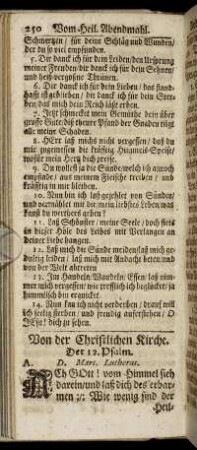 250 Vom Heil. Abendmahl.
Schmertzen / für deine Schläg und Wunden /
der du so viel empfunden.
5. Dir danck ich für dein Leiden / den Ursprung
meiner Freuden / dir danck ich für dein Sehnen /
und heiß-vergoßne Thränen.
6. Dir danck ich für dein Lieben / das stand-
hafft ist geblieben / dir danck ich für dein Ster-
ben / das mich dein Reich läßt erben.
7. Jetzt schmecket mein Gemüthe dein über
grosse Güte / diß theure Pfand der Gnaden tilgt
all meine Schaden.
8. HErr laß mich nicht vergessen / daß du
mir zugemessen die kräfftig Himmels-Speise /
wofür mein Hertz dich preise.
9. Du wollest ja die Sünde / welch ich annoch
empfinde / aus meinem Fleische treiben / und
kräfftig in mir bleiben.
10. Nun bin ich loß gezehlet von Sünden /
und vermählet mit dir mein liebstes Leben / was
kanst du werthers geben?
11. Laß Schönster / meine Seele / doch stets in
dieser Höle des Leibes mit Verlangen an
deiner Liebe hangen.
12. Laß mich die Sünde meiden / laß mich ge-
dultig leiden / laß mich mit Andacht beten / und
von der Welt abtreten
13. Im Handeln / Wandeln / Essen / laß nim-
mer mich vergessen / wie trefflich ich beglücket / ja
himmlisch bin erquicket.
14. Nun kan ich nicht verderben / drauf will
ich seelig sterben / und freudig auferstehen / O
JEsu! dich zu sehen.
Von der Christlichen Kirche.
Der 12. Psalm.
A. D. Mart. Lutherus.
ACh GOtt! vom Himmel sieh
darein / und laß dich des erbar-
men :/: Wie wenig sind der
Heil-